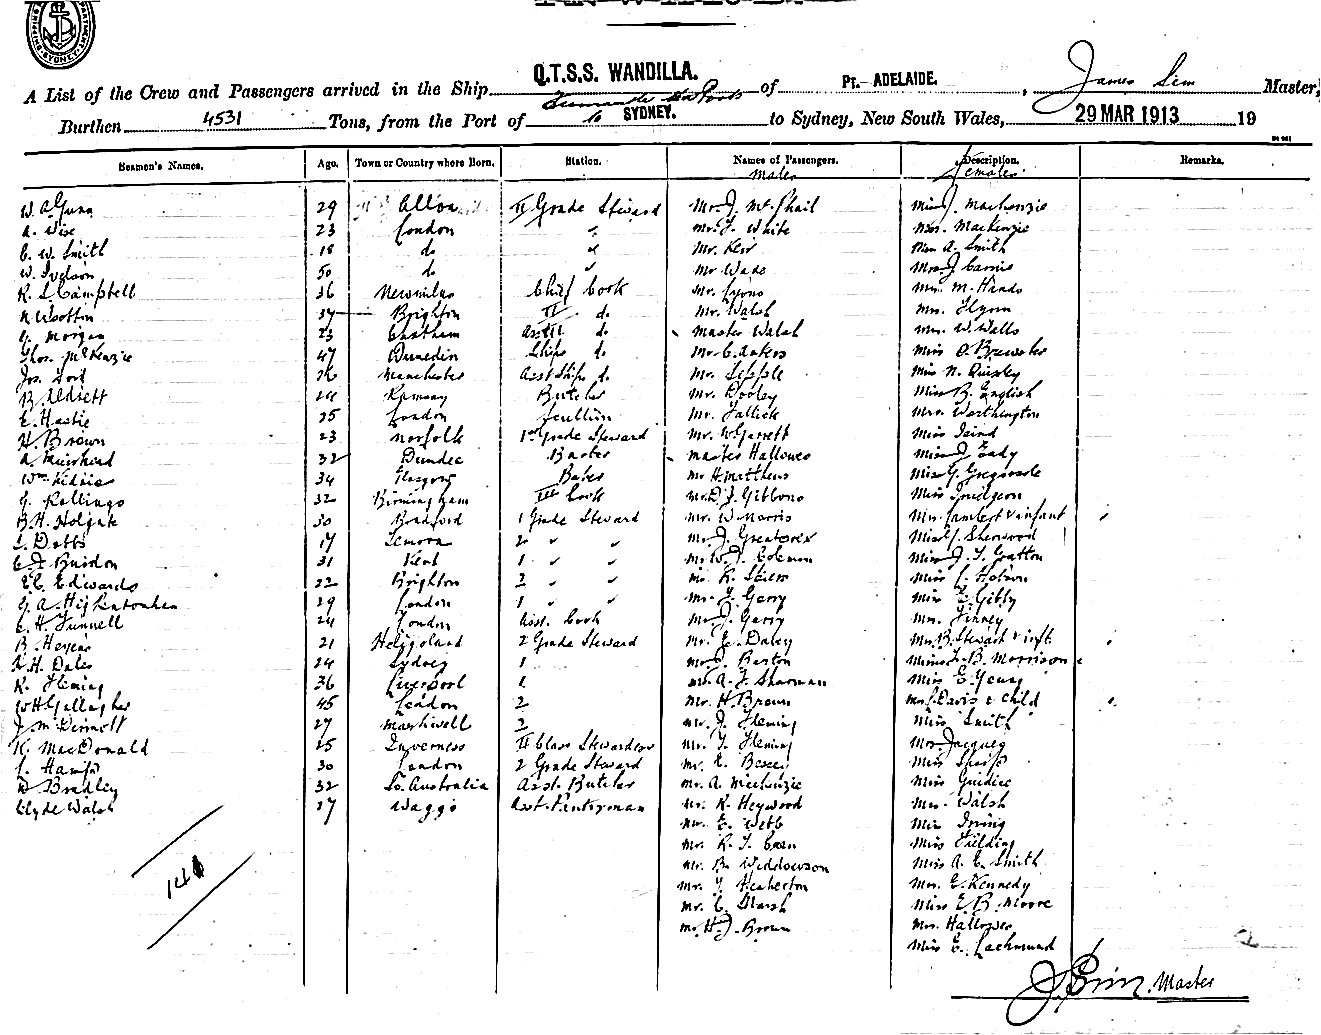 SHIPPING DEPARTMENT SYDNEY
Q.T.S.S. WANDILLA.
A List of the Crew and Passengers arrived in the Ship of Pt.- ADELAIDE, James Sim Master,
Burthen 4531 Tons, from the Port of Fremantle to SYDNEY. to Sydney, New South Wales, 29 MAR 1913 19
Seamen's Names. Age. Town or Country where Born. Station. Names of Passengers. Description. Remarks.
Males Females
W. A. Gunn 29 Alloa II Grade Steward Mr. J. McPhail Miss J. Mackenzie
A. Wise 23 London " Mr. J. White Mrs. MacKenzie
C. W. Smith 18 do " Mr. Kerr Miss A. Smith
W. 50 do " Mr Wade Mrs J Cairns
R. S. Campbell 36 Newmilns Chief Cook Mr. Lyons Mrs. M. Hands
A Wootton 37 Brighton II do. Mr. Walsh Mrs. Flynn
G. Morgan 23 Eastham Asst II do Master Walsh Mrs. W. Walls
Thos. McKenzie 47 Dunedin Ships do Mr. C. Ankers Miss O. Brewster
Jos. 26 Manchester Asst Ships do Mr. Miss N. Quigley
B. 24 Ramsay Butcher Mr. Dooley Miss B. English
E. Hastie 25 London Scullion Mr. Tallick Mrs. Worthington
H. Brown 23 Norfolk 1st Grade Steward Mr. W Garrett Miss Laird
A. Muirhead 32 Dundee Barber Master Hallowes Miss J Eady
Wm. 34 Glasgow Baker Mr H. Matthews Miss G.
G. Rallings 32 Birmingham III Cook Mr. D. J. Gibbons Miss Pridgeon
B. H. Holgate 30 Bradford 1 Grade Steward Mr. W. Morris Mrs. Lambert & infant
Dobbs 17 2 " " Mr. J. Greatorex Miss J. Sherwood
31 Kent 1 " " Mr. W. J. Coleman Miss J. T. Gatton
E. C. Edwards 22 Brighton 2 " " Mr. R. Miss
G. A. 29 London 1 " " Mr. J. Gerry Miss E. Gibby
C. H. Funnell 24 London Asst. Cook Mr. J. Gerry Mrs. Finney
B. 21 Heligoland 2 Grade Steward Mr. E. Daley Mrs B. Stewart & inft.
H. Dales 24 Sydney 1 Mr J. Barton Misses F. B. Morrison
R. Fleming 36 Liverpool 1 Mr. A. J. Sharman Miss E. Young
W H Gallagher 45 London 2 Mr. H. Brown Mrs J. Davis & child
J. McDermott 27 2 Mr. J. Fleming Miss Smith
K. MacDonald 25 Inverness II Class Stewardess Mr. T. Fleming Mrs Jacques
30 London 2 Grade Steward Mr. Miss
D Bradley 32 So. Australia Asst. Butcher Mr. A. McKenzie Miss Guidice
Clyde Walsh 17 Wagga Asst. Pantryman Mr. R. Heywood Mrs. Walsh
Mr. E. Webb Miss Irving
Mr. R. T. Miss Fielding
Mr. B. Widdowson Miss A. E. Smith
Mr. T. Heaherton Mrs. E. Kennedy
Mr. C. Marsh Miss E. B. Moore
Mr. H. J. Brown Mrs. Hallowes
Miss E. Lachmund
J. Sim. Master